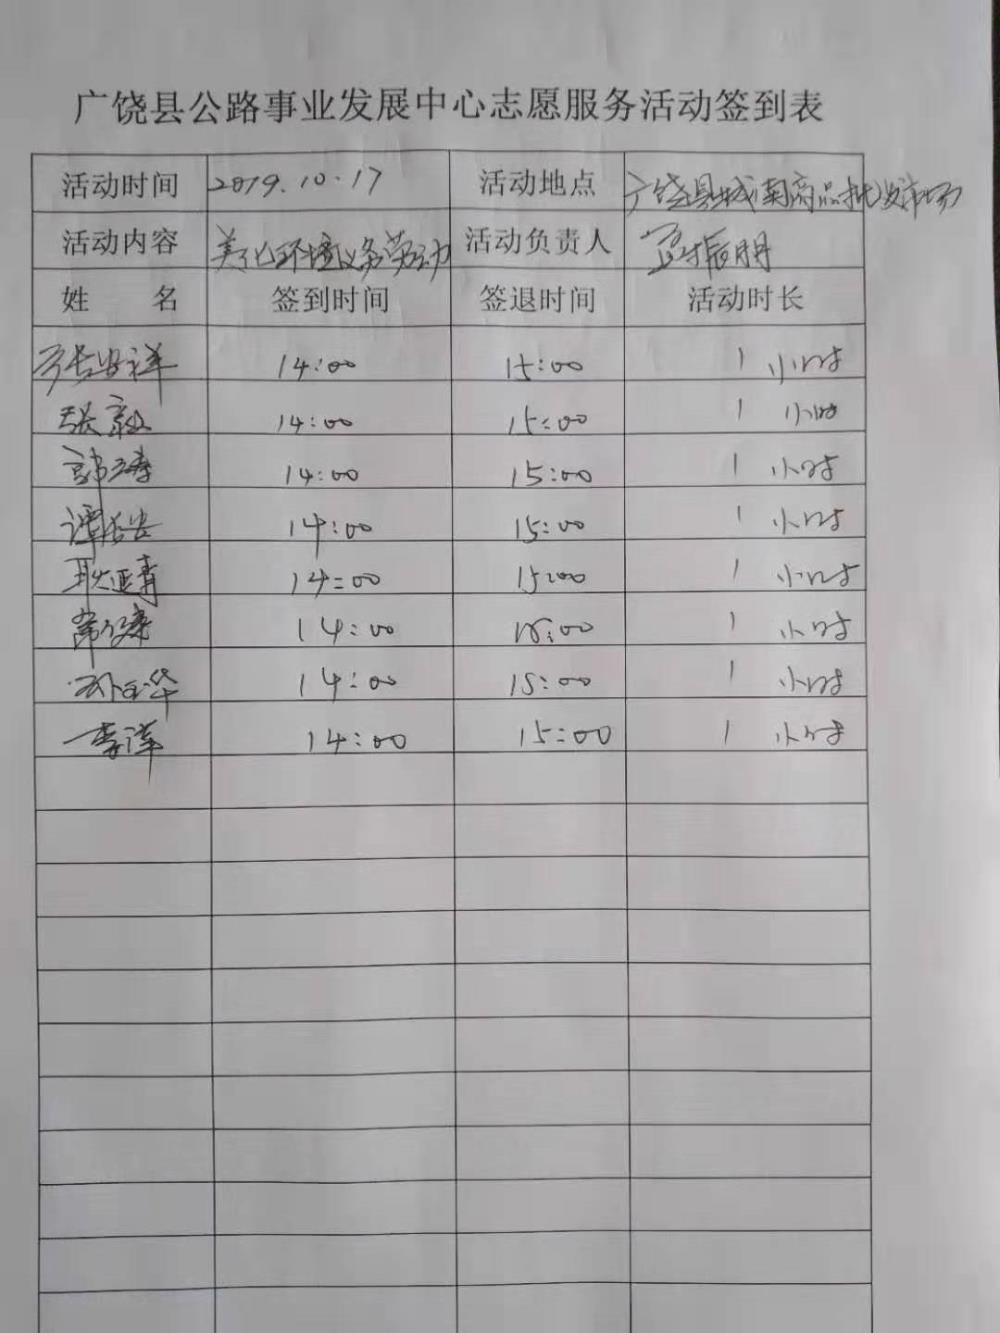 广饶县公路事业发展中心志愿服务活动签到表
活动时间 2019.10.17 活动地点 广饶县城南商品批发市场
活动内容 美化环境义务劳动 活动负责人 孟振明
姓 名 签到时间 签退时间 活动时长
14:00 15:00 1 小时
张毅 14:00 15:00 1 小时
郭涛 14:00 15:00 1 小时
14:00 15:00 1 小时
耿亚青 14:00 15:00 1 小时
14:00 15:00 1 小时
14:00 15:00 1 小时
李洋 14:00 15:00 1 小时